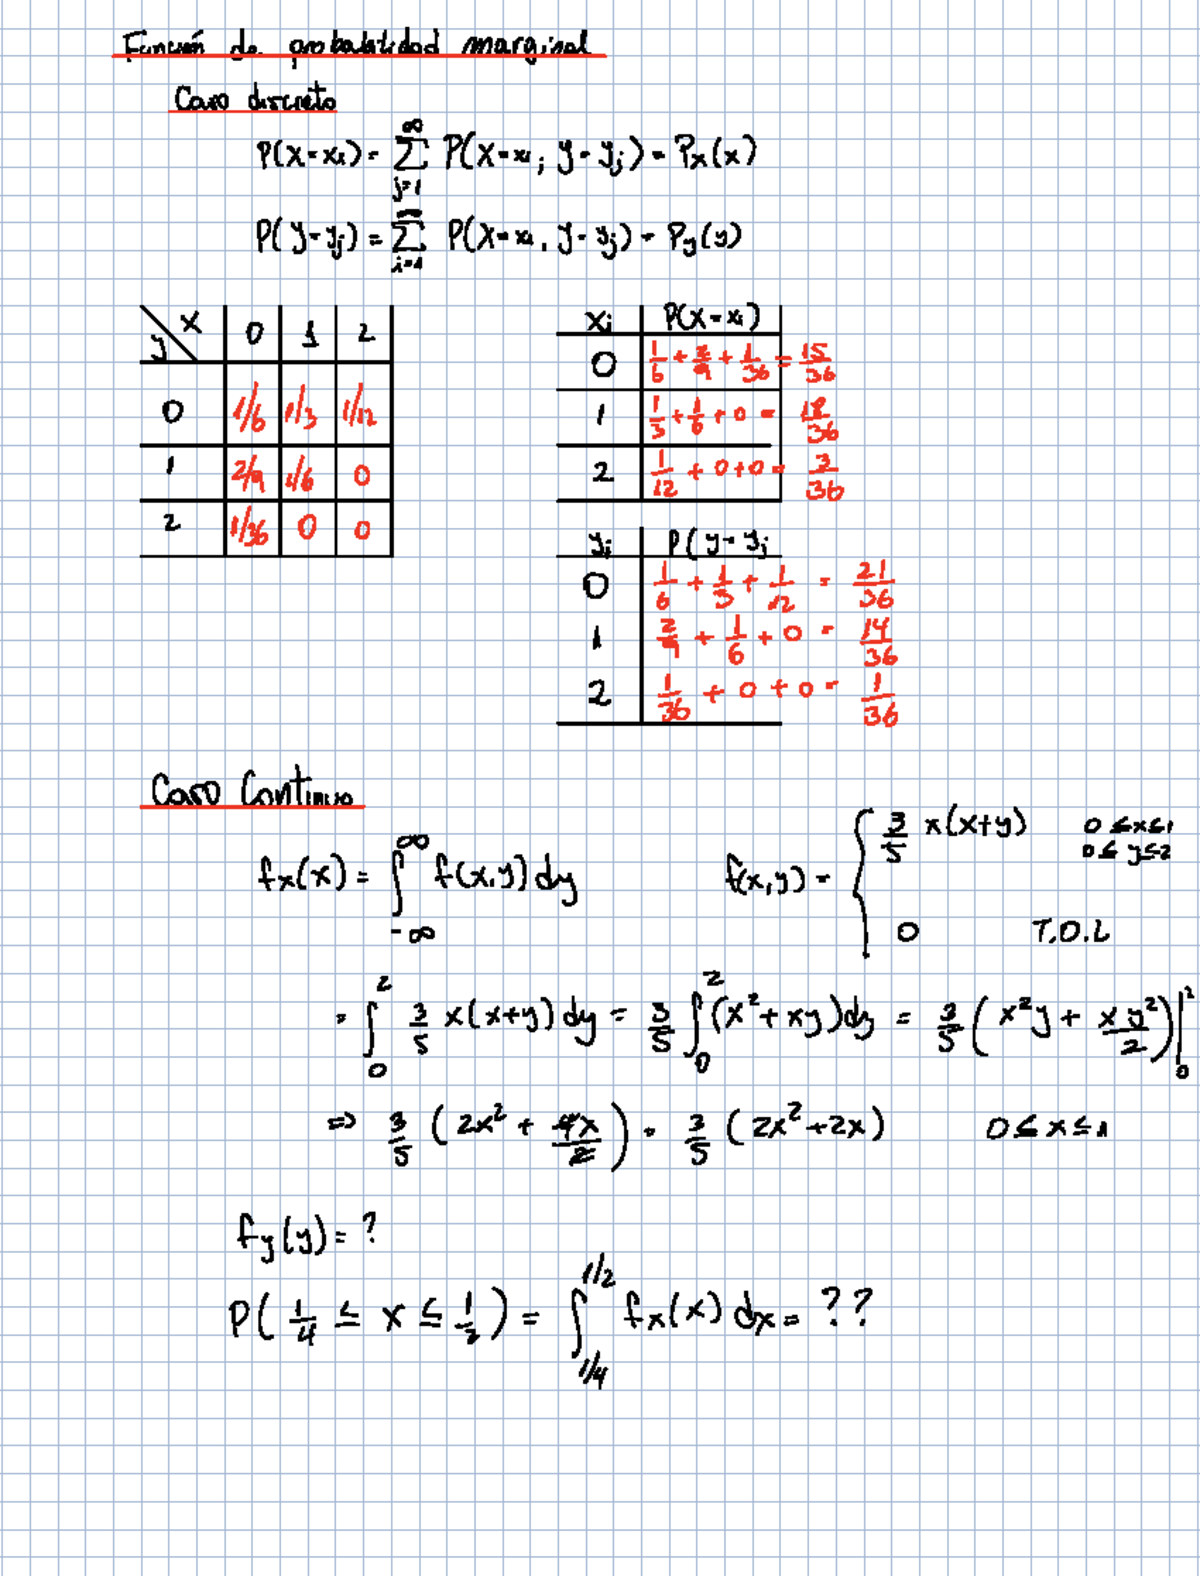 Función de probabilidad marginal
Caso discreto
P(X=xi) = ∑_{j=1}^{∞} P(X=xi; y=yj) = Px(x)
P(y=yj) = ∑_{i=1}^{∞} P(X=xi, y=yj) = Py(y)
y\X 0 1 2
0 1/6 1/3 1/12
1 2/9 1/6 0
2 1/36 0 0
Xi P(X=xi)
0 1/6 + 2/9 + 1/36 = 15/36
1 1/3 + 1/6 + 0 = 18/36
2 1/12 + 0 + 0 = 3/36
yi P(y=yj
0 1/6 + 1/3 + 1/12 = 21/36
1 2/9 + 1/6 + 0 = 14/36
2 1/36 + 0 + 0 = 1/36
Caso Continuo
fx(x) = ∫_{-∞}^{∞} f(x,y) dy
f(x,y) = { 3/5 x(x+y) 0≤x≤1
0≤y≤2
0 T.O.L
= ∫_0^2 3/5 x(x+y) dy = 3/5 ∫_0^2 (x²+xy)dy = 3/5 (x²y + xy²/2)|_0^2
⇒ 3/5 (2x² + 4x/2) = 3/5 (2x²+2x) 0≤x≤1
fy(y) = ?
P(1/4 ≤ x ≤ 1/2) = ∫_{1/4}^{1/2} fx(x) dx = ??